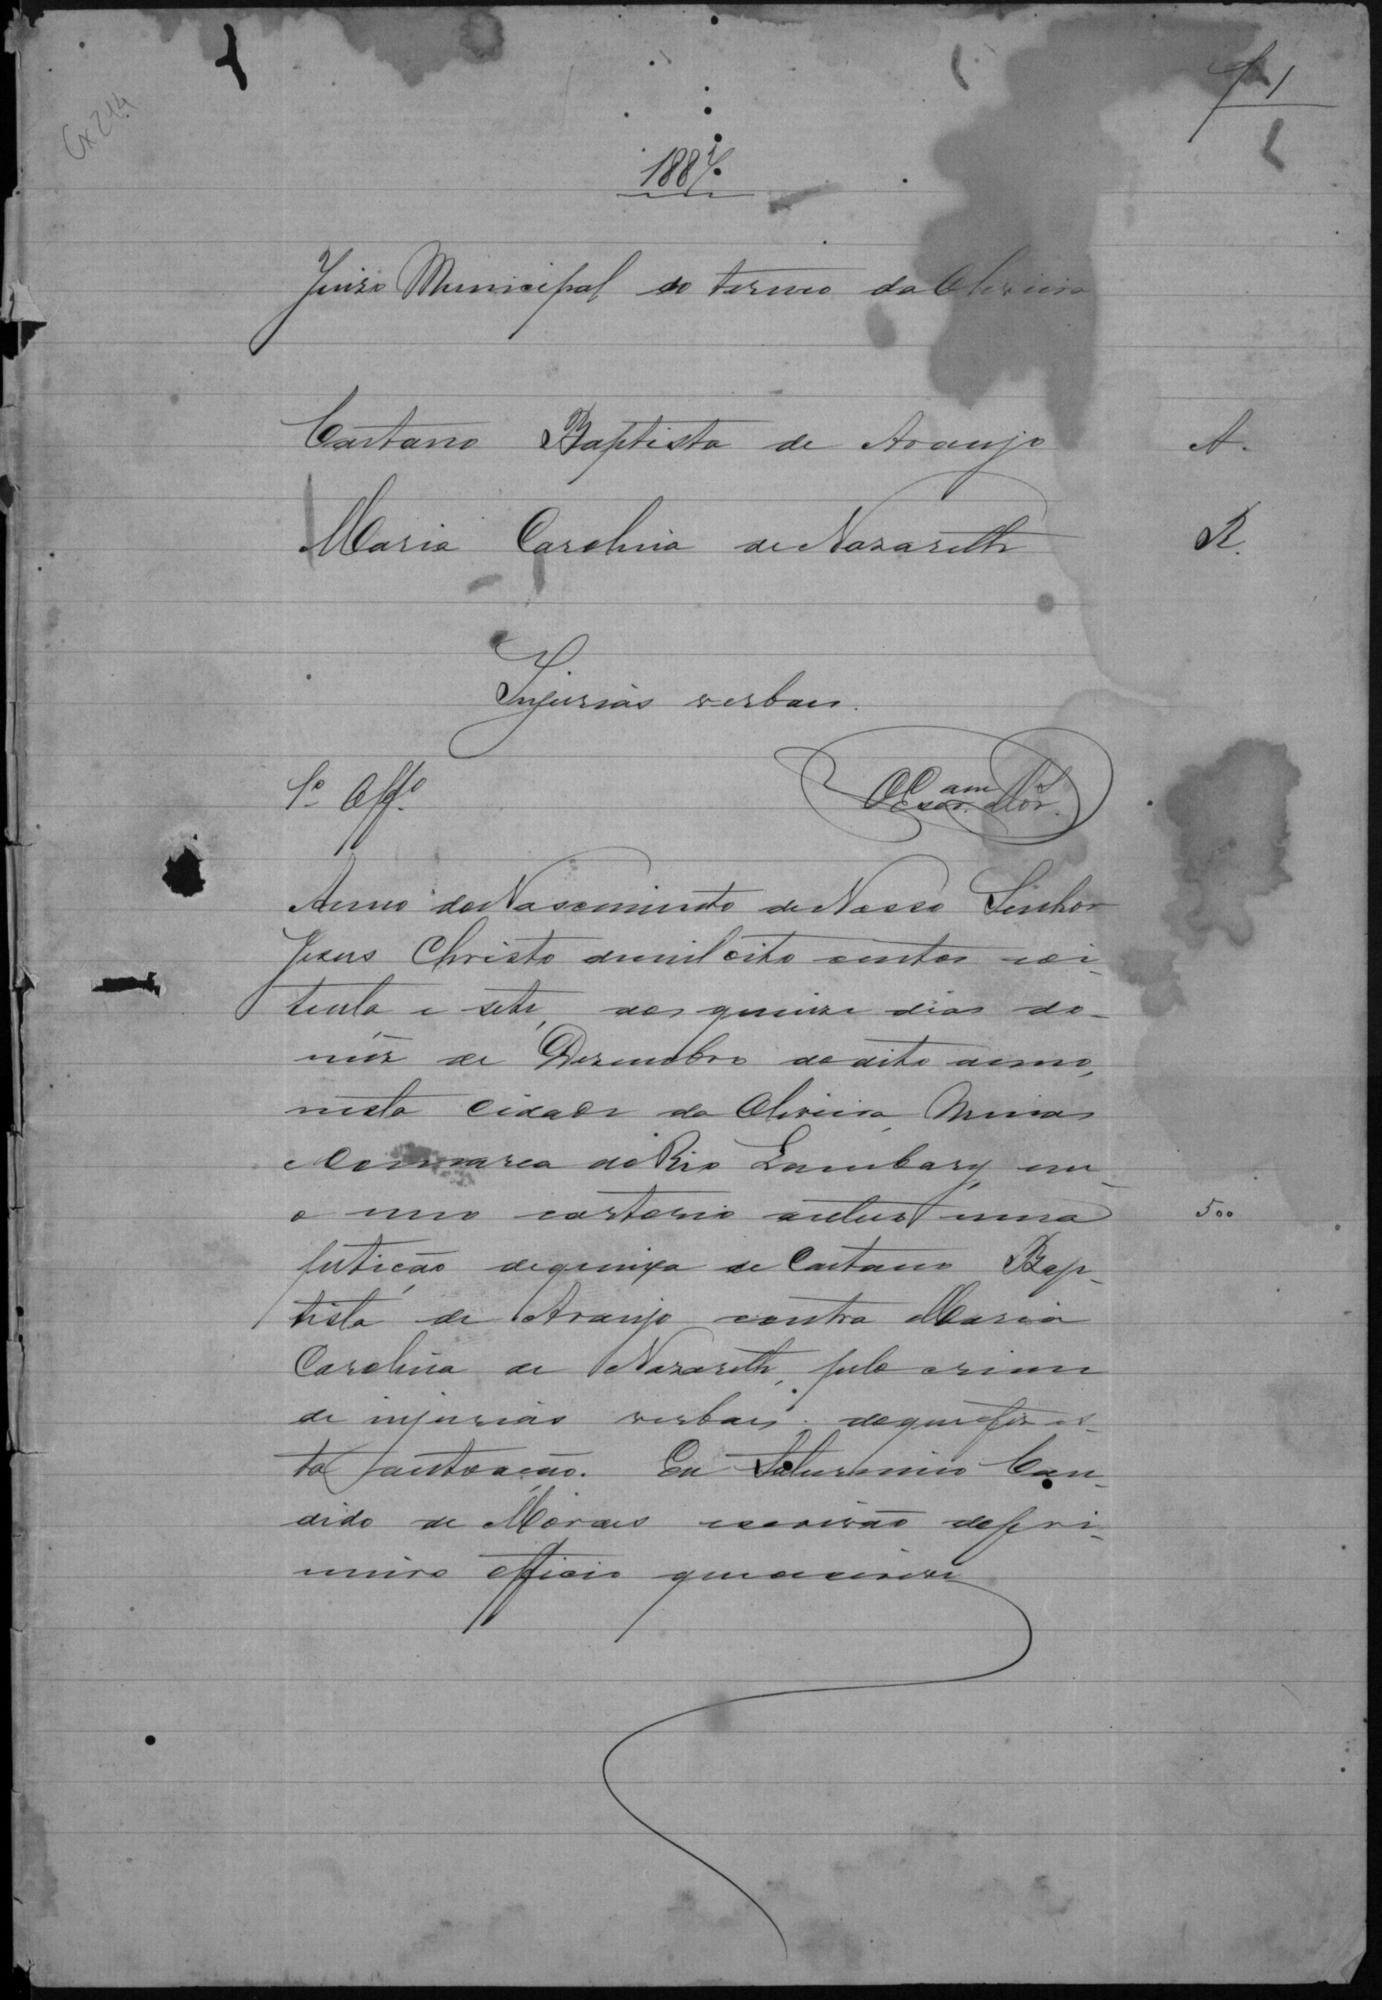 Cx 214
f 1
1887
Juizo Municipal do termo da Oliveira
Caetano Baptista de Araujo A.
Maria Carolina de Nazareth R.
Injurias verbaes.
1º Offº.
O Escr. Mor.
Anno do Nascimento de Nosso Senhor
Jesus Christo de mil oito centos e oi-
tenta e sete, aos quinze dias do
mez de Dezembro do dito anno,
nesta cidade da Oliveira, Minas
Commarca do Rio Lambary, em
o meo cartorio autuo uma 500
petição de queixa de Caetano Bap-
tista de Araujo contra Maria
Carolina de Nazareth, pelo crime
de injurias verbaes: do que fiz es-
ta autoação. Eu Saturnino Can-
dido de Moraes escrivão do pri-
meiro officio que escrevi